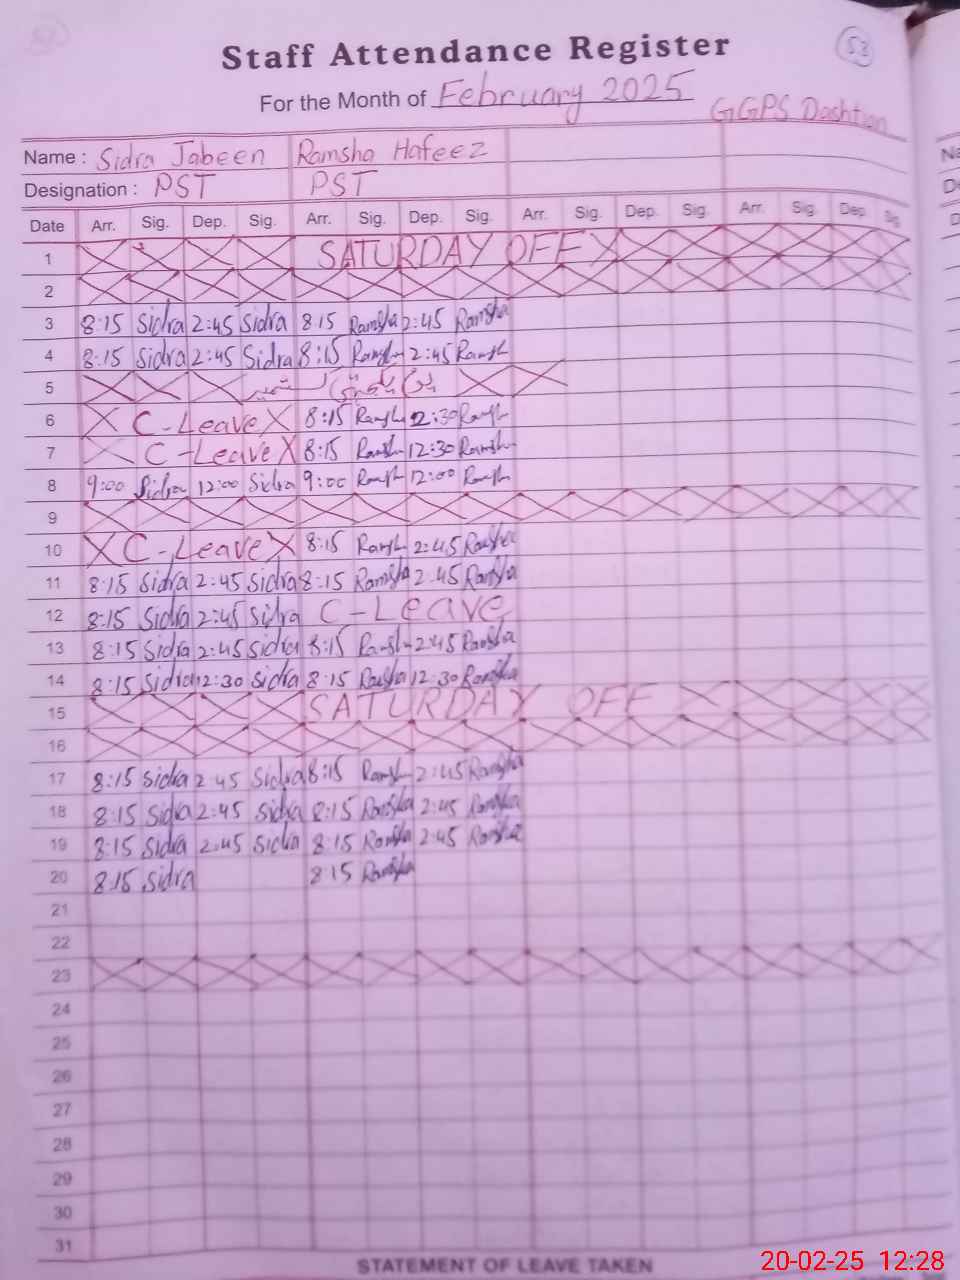 53
Staff Attendance Register
For the Month of February 2025
GGPS Dashtian
Name : Sidra Jabeen Ramsha Hafeez
Designation : PST PST
Date Arr. Sig. Dep. Sig. Arr. Sig. Dep. Sig. Arr. Sig. Dep. Sig. Arr. Sig. Dep. Sig.
1 SATURDAY OFF
2
3 8:15 Sidra 2:45 Sidra 8:15 Ramsha 2:45 Ramsha
4 8:15 Sidra 2:45 Sidra 8:15 Ramsha 2:45 Ramsha
5 یوم یکجہتی کشمیر
6 C-Leave 8:15 Ramsha 2:30 Ramsha
7 C-Leave 8:15 Ramsha 12:30 Ramsha
8 9:00 Sidra 12:00 Sidra 9:00 Ramsha 12:00 Ramsha
9
10 C-Leave 8:15 Ramsha 2:45 Ramsha
11 8:15 Sidra 2:45 Sidra 8:15 Ramsha 2:45 Ramsha
12 8:15 Sidra 2:45 Sidra C-Leave
13 8:15 Sidra 2:45 Sidra 8:15 Ramsha 2:45 Ramsha
14 8:15 Sidra 12:30 Sidra 8:15 Ramsha 12:30 Ramsha
15 SATURDAY OFF
16
17 8:15 Sidra 2:45 Sidra 8:15 Ramsha 2:45 Ramsha
18 8:15 Sidra 2:45 Sidra 8:15 Ramsha 2:45 Ramsha
19 8:15 Sidra 2:45 Sidra 8:15 Ramsha 2:45 Ramsha
20 8:15 Sidra 8:15 Ramsha
21
22
23
24
25
26
27
28
29
30
31
STATEMENT OF LEAVE TAKEN
20-02-25 12:28